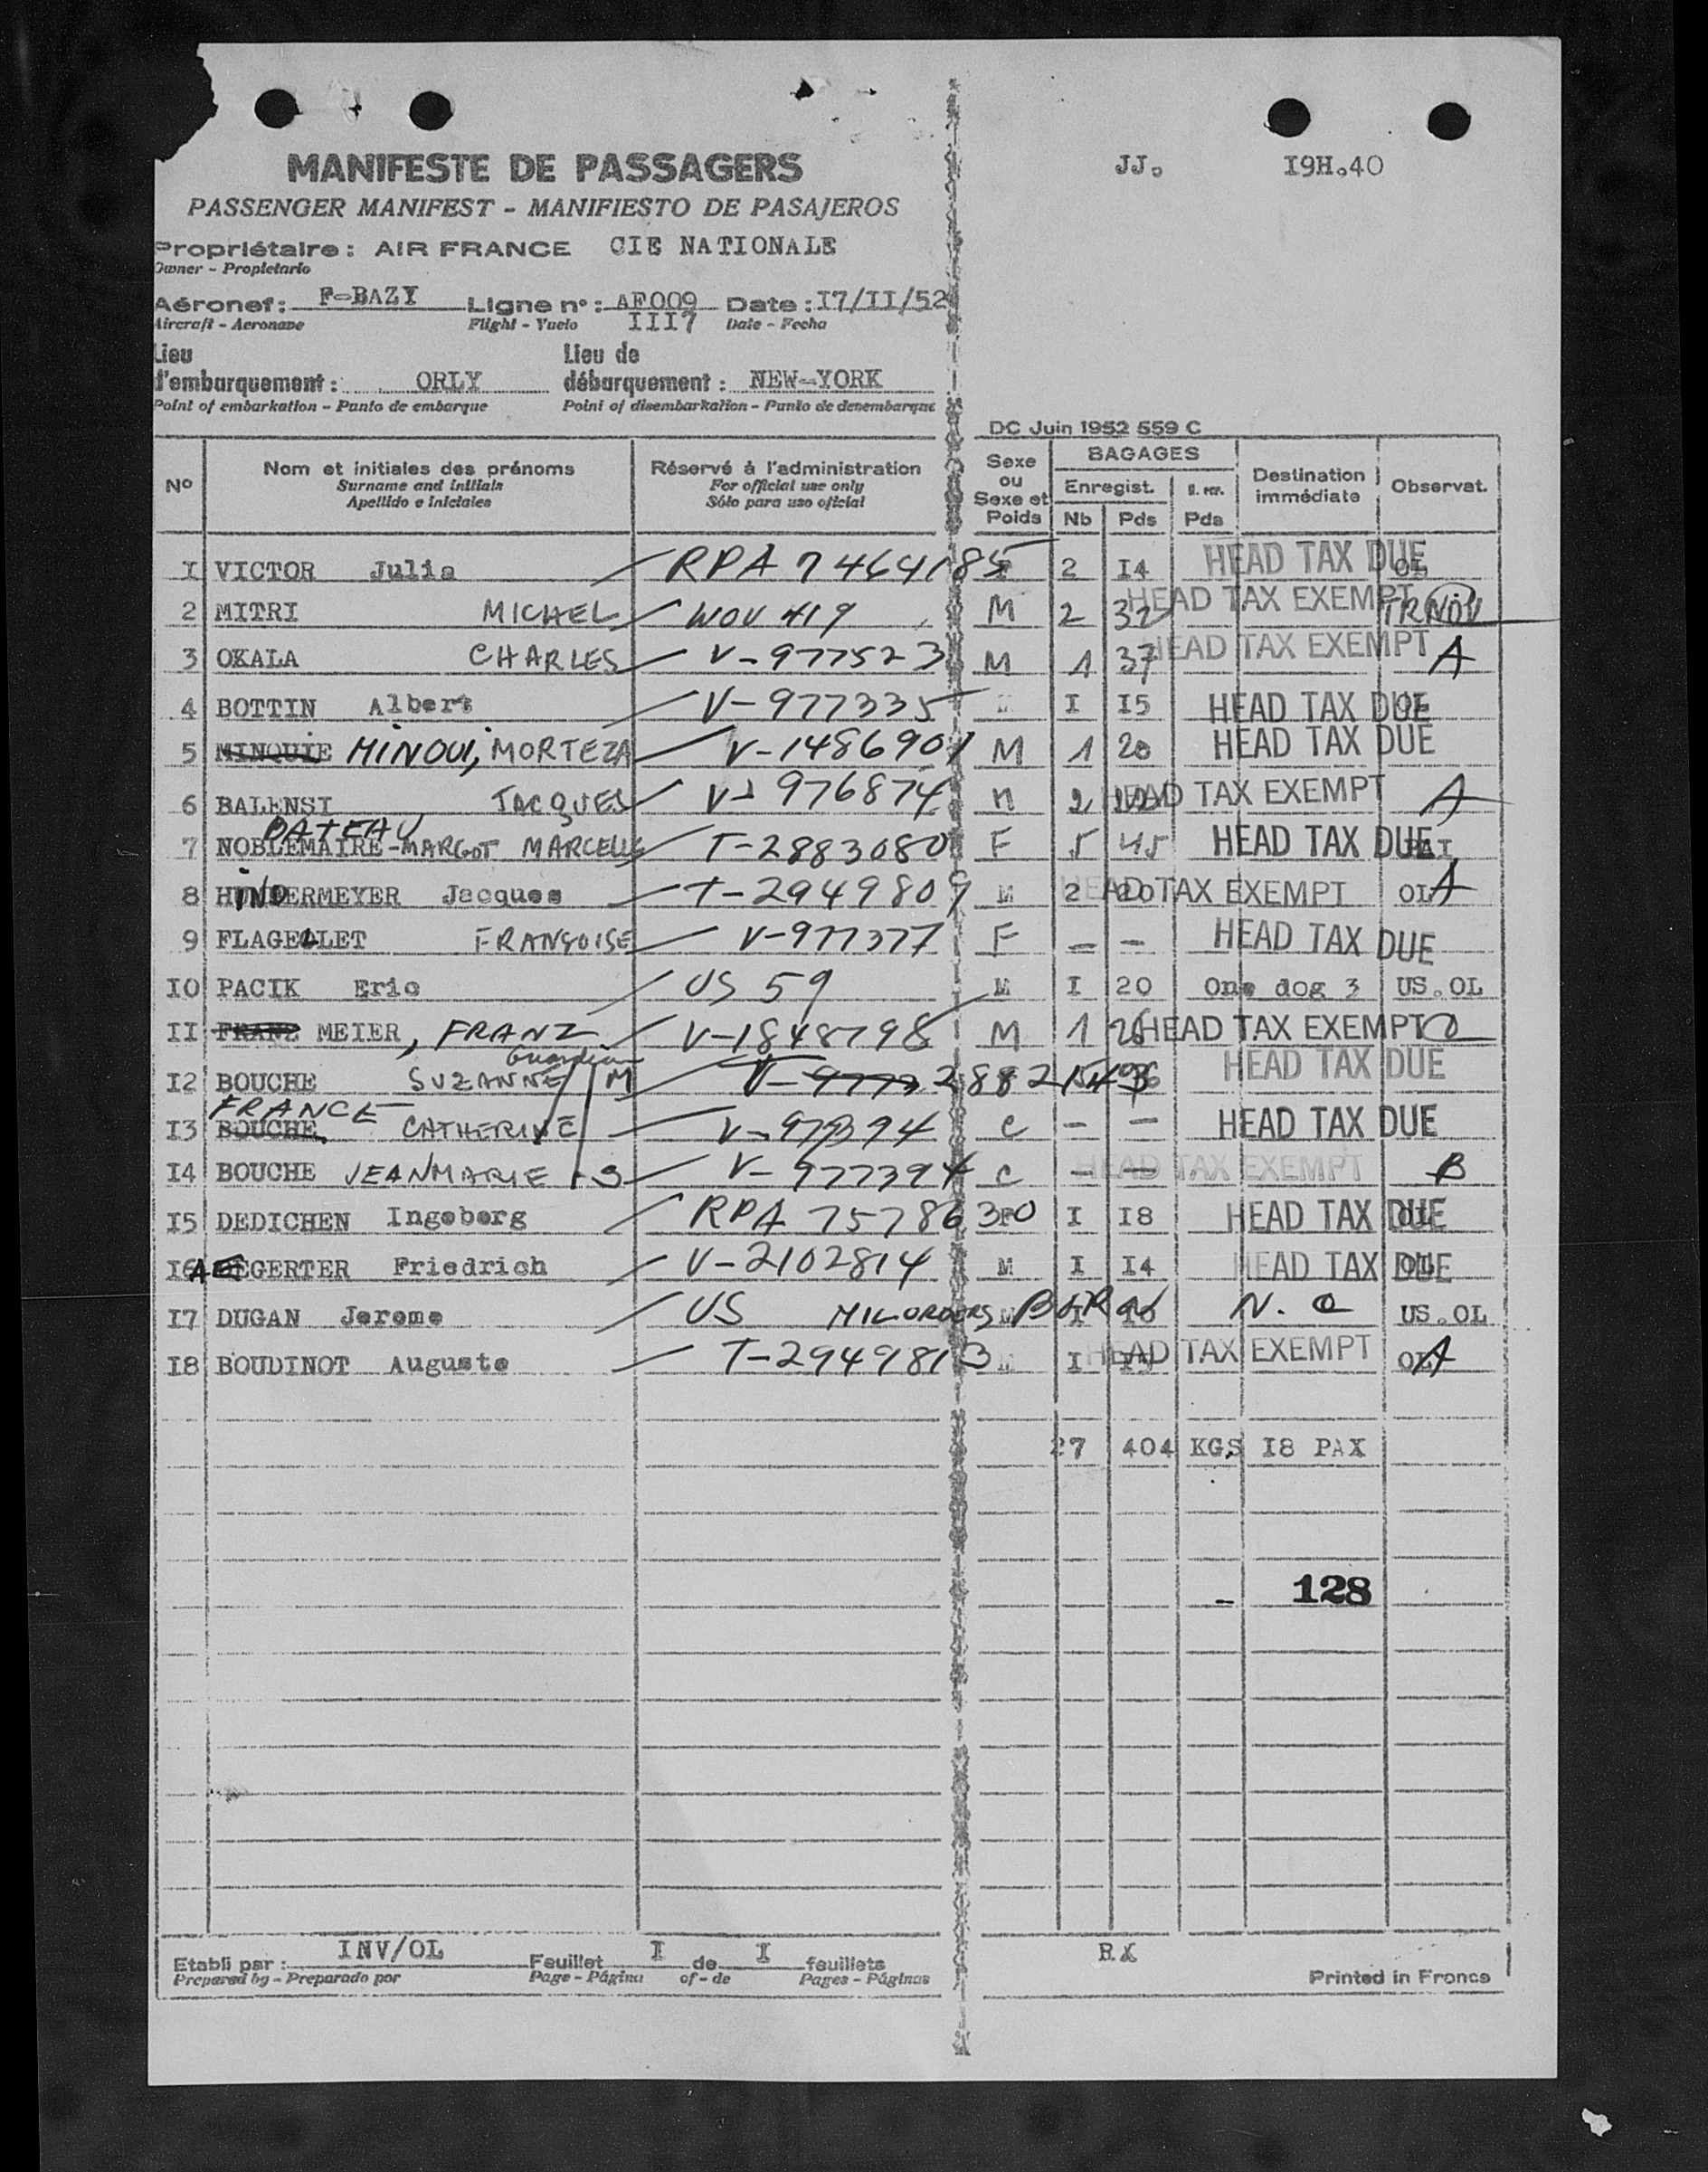 JJ. I9H.40
MANIFESTE DE PASSAGERS
PASSENGER MANIFEST - MANIFIESTO DE PASAJEROS
Propriétaire : AIR FRANCE CIE NATIONALE
Owner - Propietario
Aéronef : F-BAZY Ligne n° : AF009 Date : I7/II/52
Aircraft - Aeronave Flight - Vuelo III7 Date - Fecha
Lieu Lieu de
d'embarquement : ORLY débarquement : NEW-YORK
Point of embarkation - Punto de embarque Point of disembarkation - Punto de desembarque
DC Juin 1952 559 C
Nº Nom et initiales des prénoms Réservé à l'administration Sexe ou Sexe et Poids BAGAGES Destination immédiate Observat.
Surname and initials For official use only Enregist.
Apellido e iniciales Sólo para uso oficial Nb Pds Pds
I VICTOR Julia RPA 7464185 2 I4 HEAD TAX DUE OL
2 MITRI MICHEL WOV 419 M 2 32 HEAD TAX EXEMPT TR NOV
3 OKALA CHARLES V-977523 M 1 37 HEAD TAX EXEMPT A
4 BOTTIN Albert V-977335 M I I5 HEAD TAX DUE OL
5 MINQUIE MINOUI, MORTEZA V-1486901 M 1 20 HEAD TAX DUE
6 BALENSI JACQUES V-976874 M 2 HEAD TAX EXEMPT A
PATEAU
7 NOBLEMAIRE-MARGOT MARCELLE T-2883080 F 5 45 HEAD TAX DUE
8 HINDERMEYER Jacques T-2949809 M 2 20 HEAD TAX EXEMPT OL A
9 FLAGELLET FRANÇOISE V-977377 F - - HEAD TAX DUE
I0 PACIK Eric US 59 M I 20 One dog 3 US.OL
II FRANZ MEIER, FRANZ V-1848798 M 1 26 HEAD TAX EXEMPT
Guardian
I2 BOUCHE SUZANNE M 2882143 HEAD TAX DUE
FRANCE
I3 BOUCHE CATHERINE V-977394 C - - HEAD TAX DUE
I4 BOUCHE JEANMARIE S V-977394 C - - HEAD TAX EXEMPT B
I5 DEDICHEN Ingeborg RPA 7578630 F I I8 HEAD TAX DUE OL
I6 AEGERTER Friedrich V-2102814 M I I4 HEAD TAX DUE OL
I7 DUGAN Jerome US MIL ORDERS M I US.OL
I8 BOUDINOT Auguste T-2949813 M I HEAD TAX EXEMPT OL A
27 404 KGS I8 PAX
128
Etabli par : INV/OL Feuillet I de I feuillets
Prepared by - Preparado por Page - Página of - de Pages - Páginas
RX
Printed in France